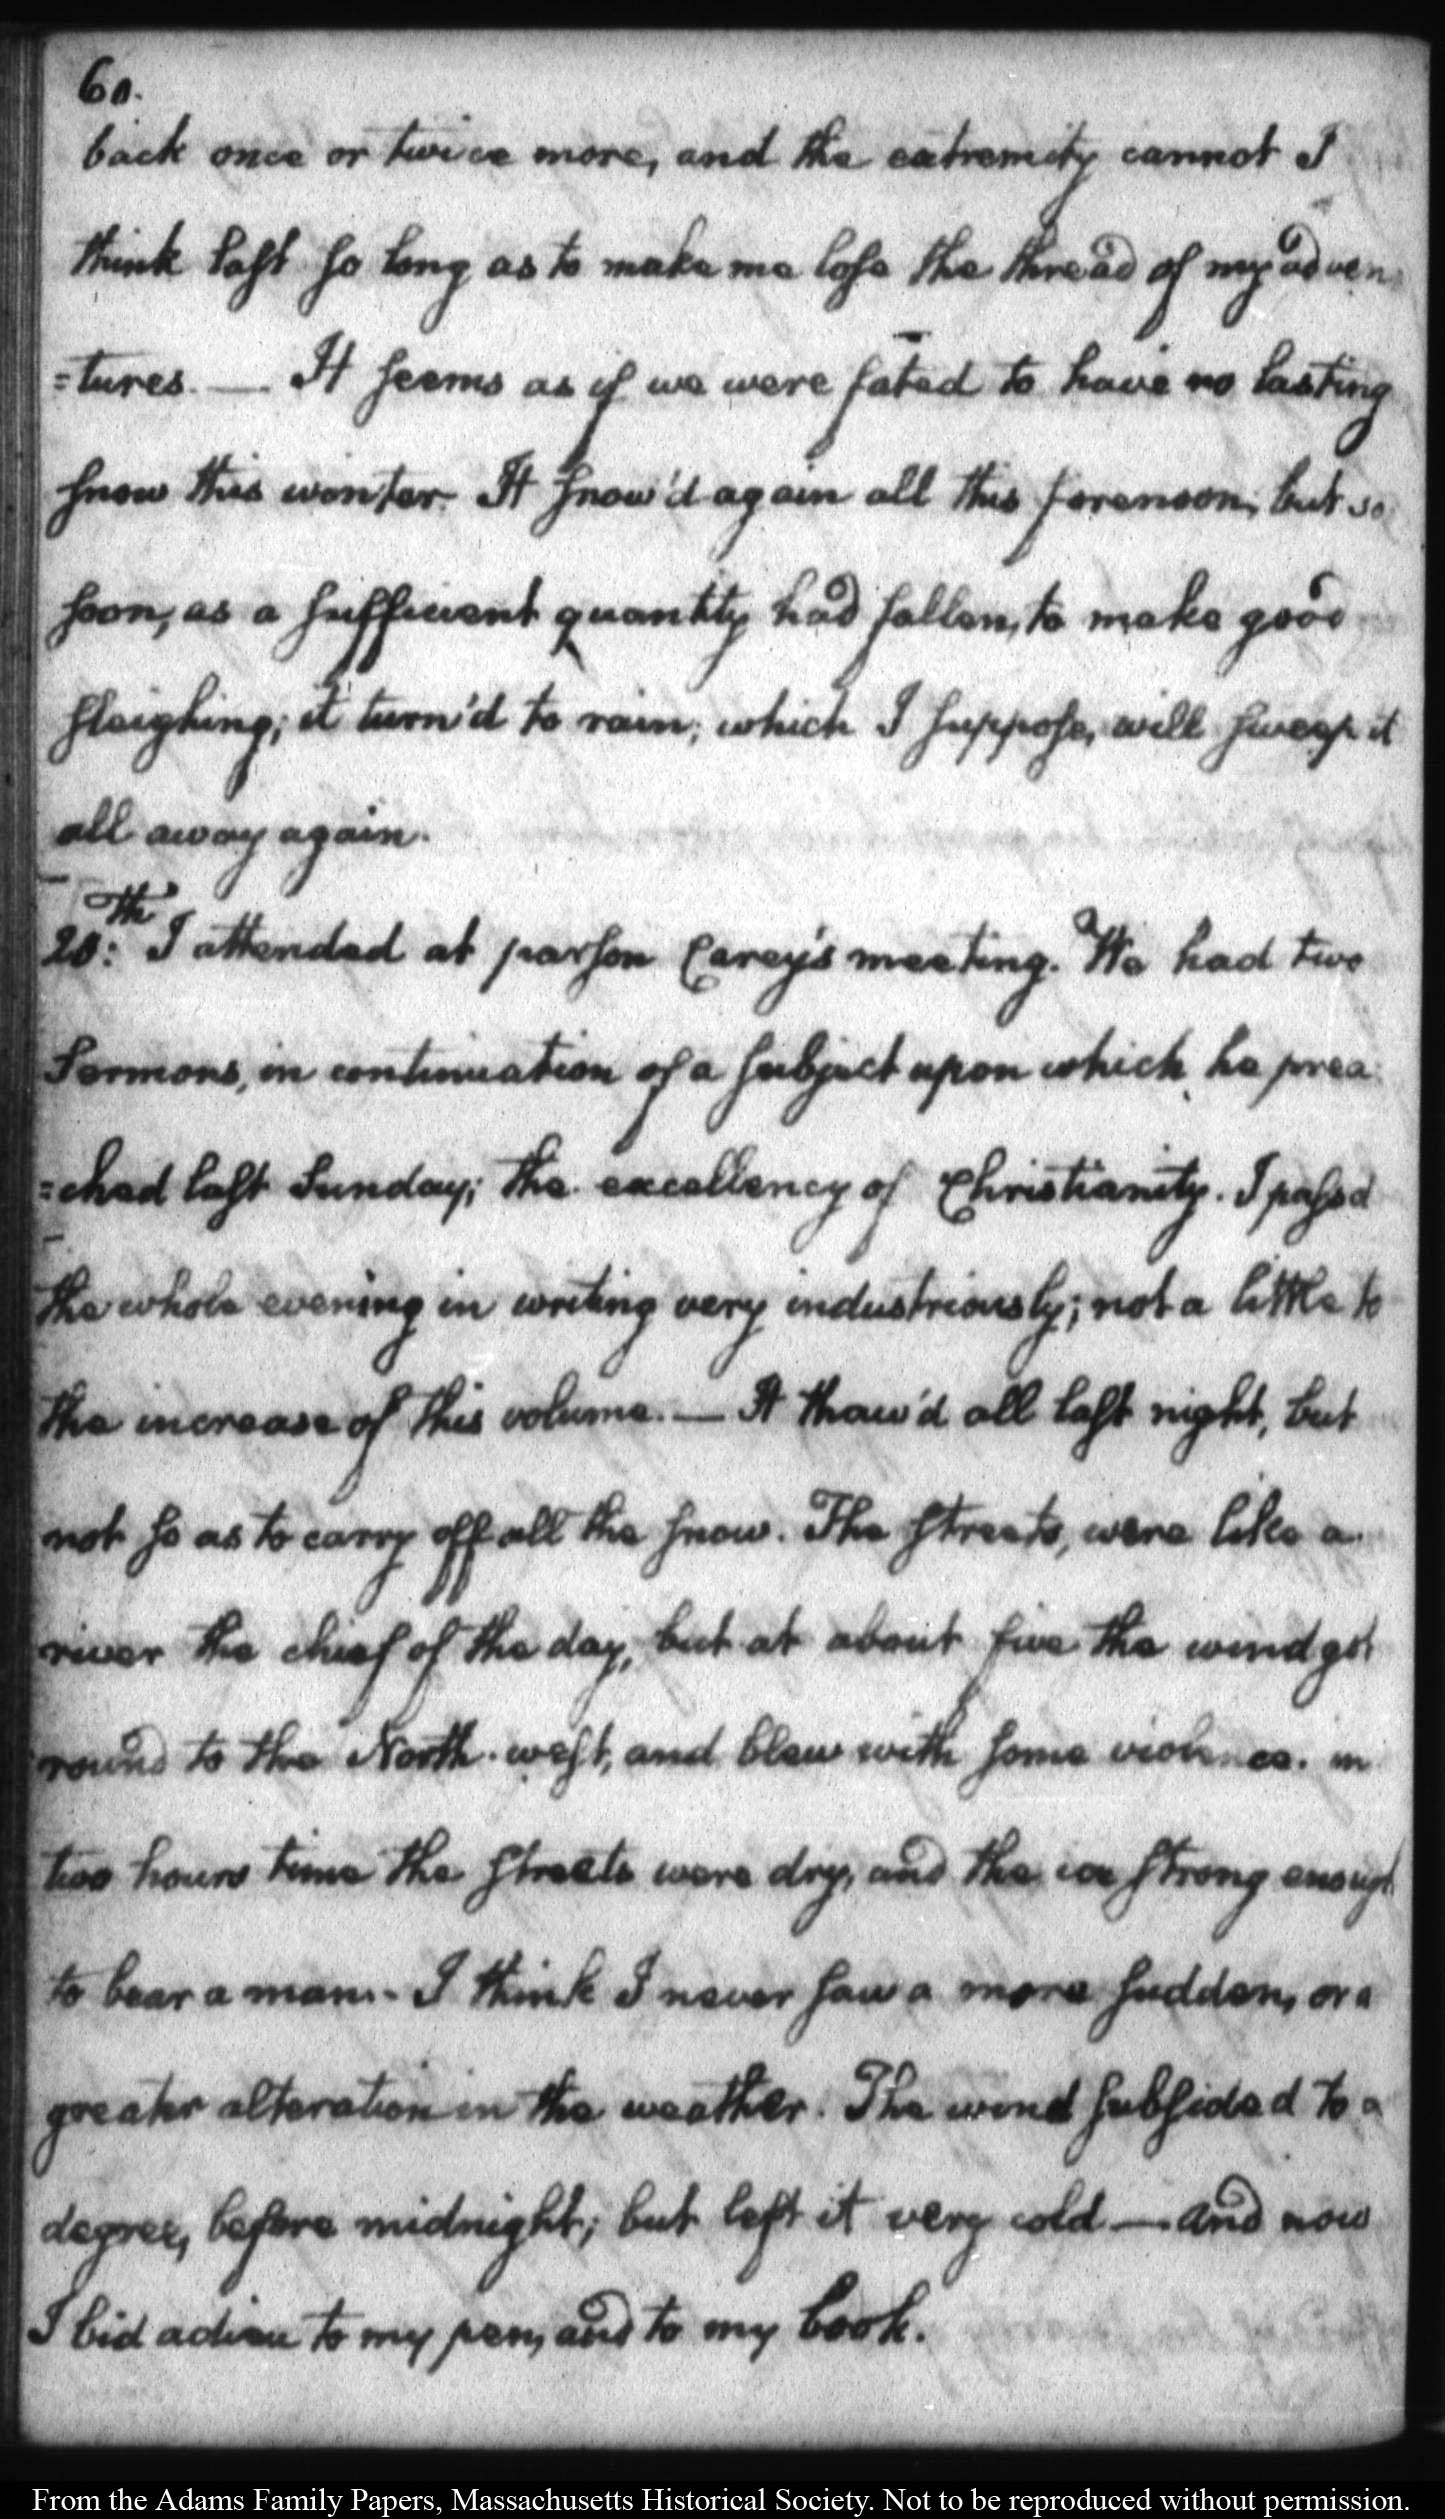 60.
back once or twice more, and the extremity cannot I
think last so long as to make me lose the thread of my adven
=tures. — It seems as if we were fated to have no lasting
snow this winter. It snow'd again all this forenoon, but so
soon, as a sufficient quantity had fallen, to make good
sleighing; it turn'd to rain; which I suppose, will sweep it
all away again.
20:th I attended at parson Carey's meeting. We had two
Sermons, in continuation of a subject upon which he prea
=ched last Sunday; the excellency of Christianity. I pass'd
the whole evening in writing very industriously; not a little to
the increase of this volume. — It thaw'd all last night, but
not so as to carry off all the snow. The streets, were like a
river the chief of the day, but at about five the wind got
round to the North-west, and blew with some violence. in
two hours time the streets were dry, and the ice strong enough
to bear a man. - I think I never saw a more sudden, or a
greater alteration in the weather. The wind subsided to a
degree, before midnight; but left it very cold — and now
I bid adieu to my pen, and to my book.
From the Adams Family Papers, Massachusetts Historical Society. Not to be reproduced without permission.